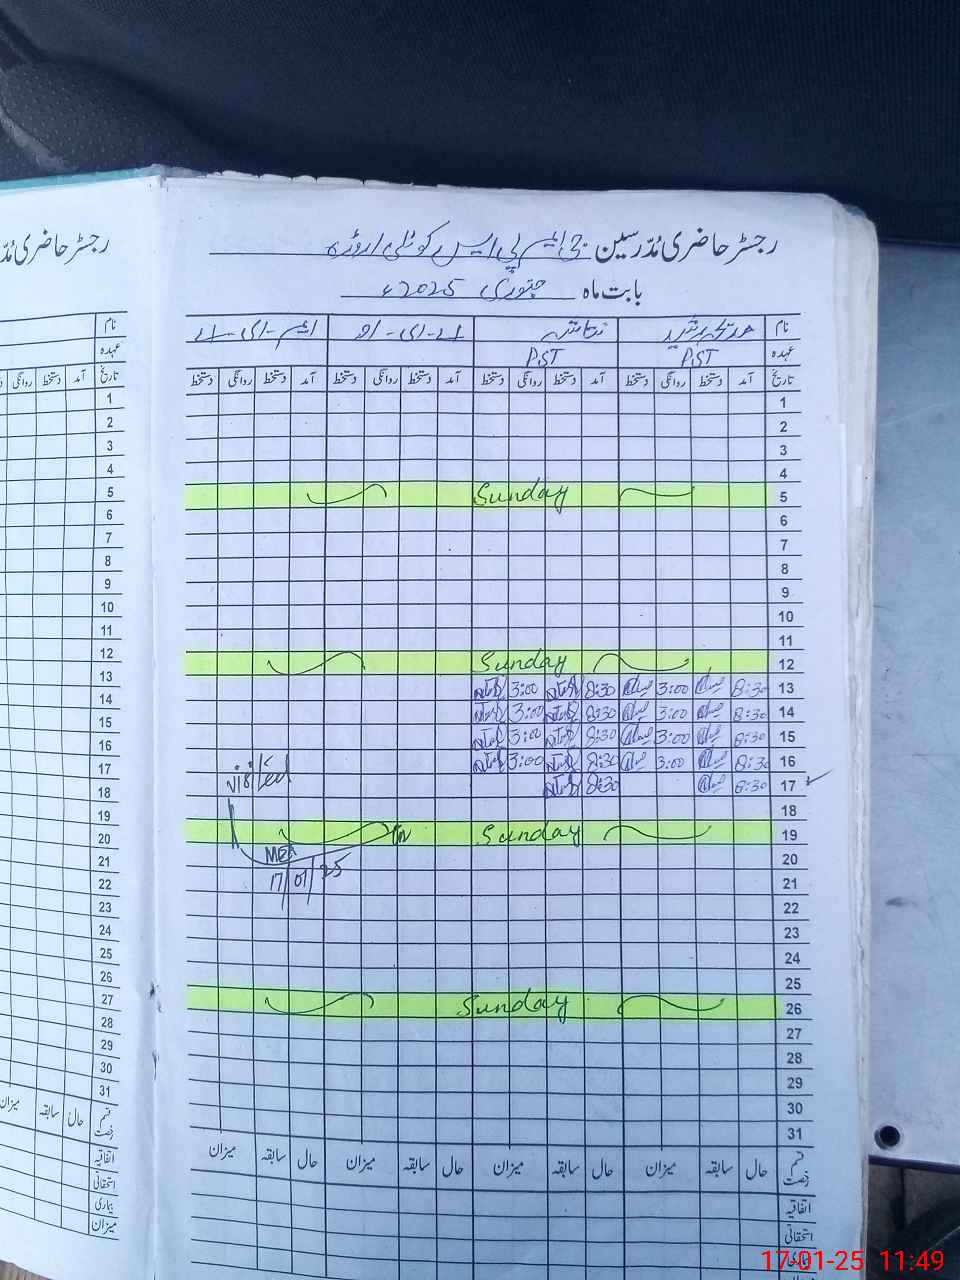 رجسٹر حاضری مُدّرسین جی ایم پی ایس کوٹلی اروڑہ
بابت ماہ جنوری 2025ء
نام
عہدہ PST PST
تاریخ آمد دستخط روانگی دستخط آمد دستخط روانگی دستخط آمد دستخط روانگی دستخط آمد دستخط روانگی دستخط
1
2
3
4
5 Sunday
6
7
8
9
10
11
12 Sunday
13 8:30 3:00 8:30 3:00
14 8:30 3:00 8:30 3:00
15 8:30 3:00 8:30 3:00
16 8:30 3:00 8:30 3:00
17 8:30 8:30
visited
18
19 Sunday
MEA
20
17/01/25
21
22
23
24
25
26 Sunday
27
28
29
30
31
قسم رخصت حال سابقہ میزان حال سابقہ میزان حال سابقہ میزان حال سابقہ میزان
اتفاقیہ
استحقاقی
بیماری
رجسٹر حاضری مُدّ
نام
عہدہ
تاریخ آمد دستخط روانگی
1
2
3
4
5
6
7
8
9
10
11
12
13
14
15
16
17
18
19
20
21
22
23
24
25
26
27
28
29
30
31
قسم رخصت حال سابقہ میزان
اتفاقیہ
استحقاقی
بیماری
میزان
17-01-25 11:49